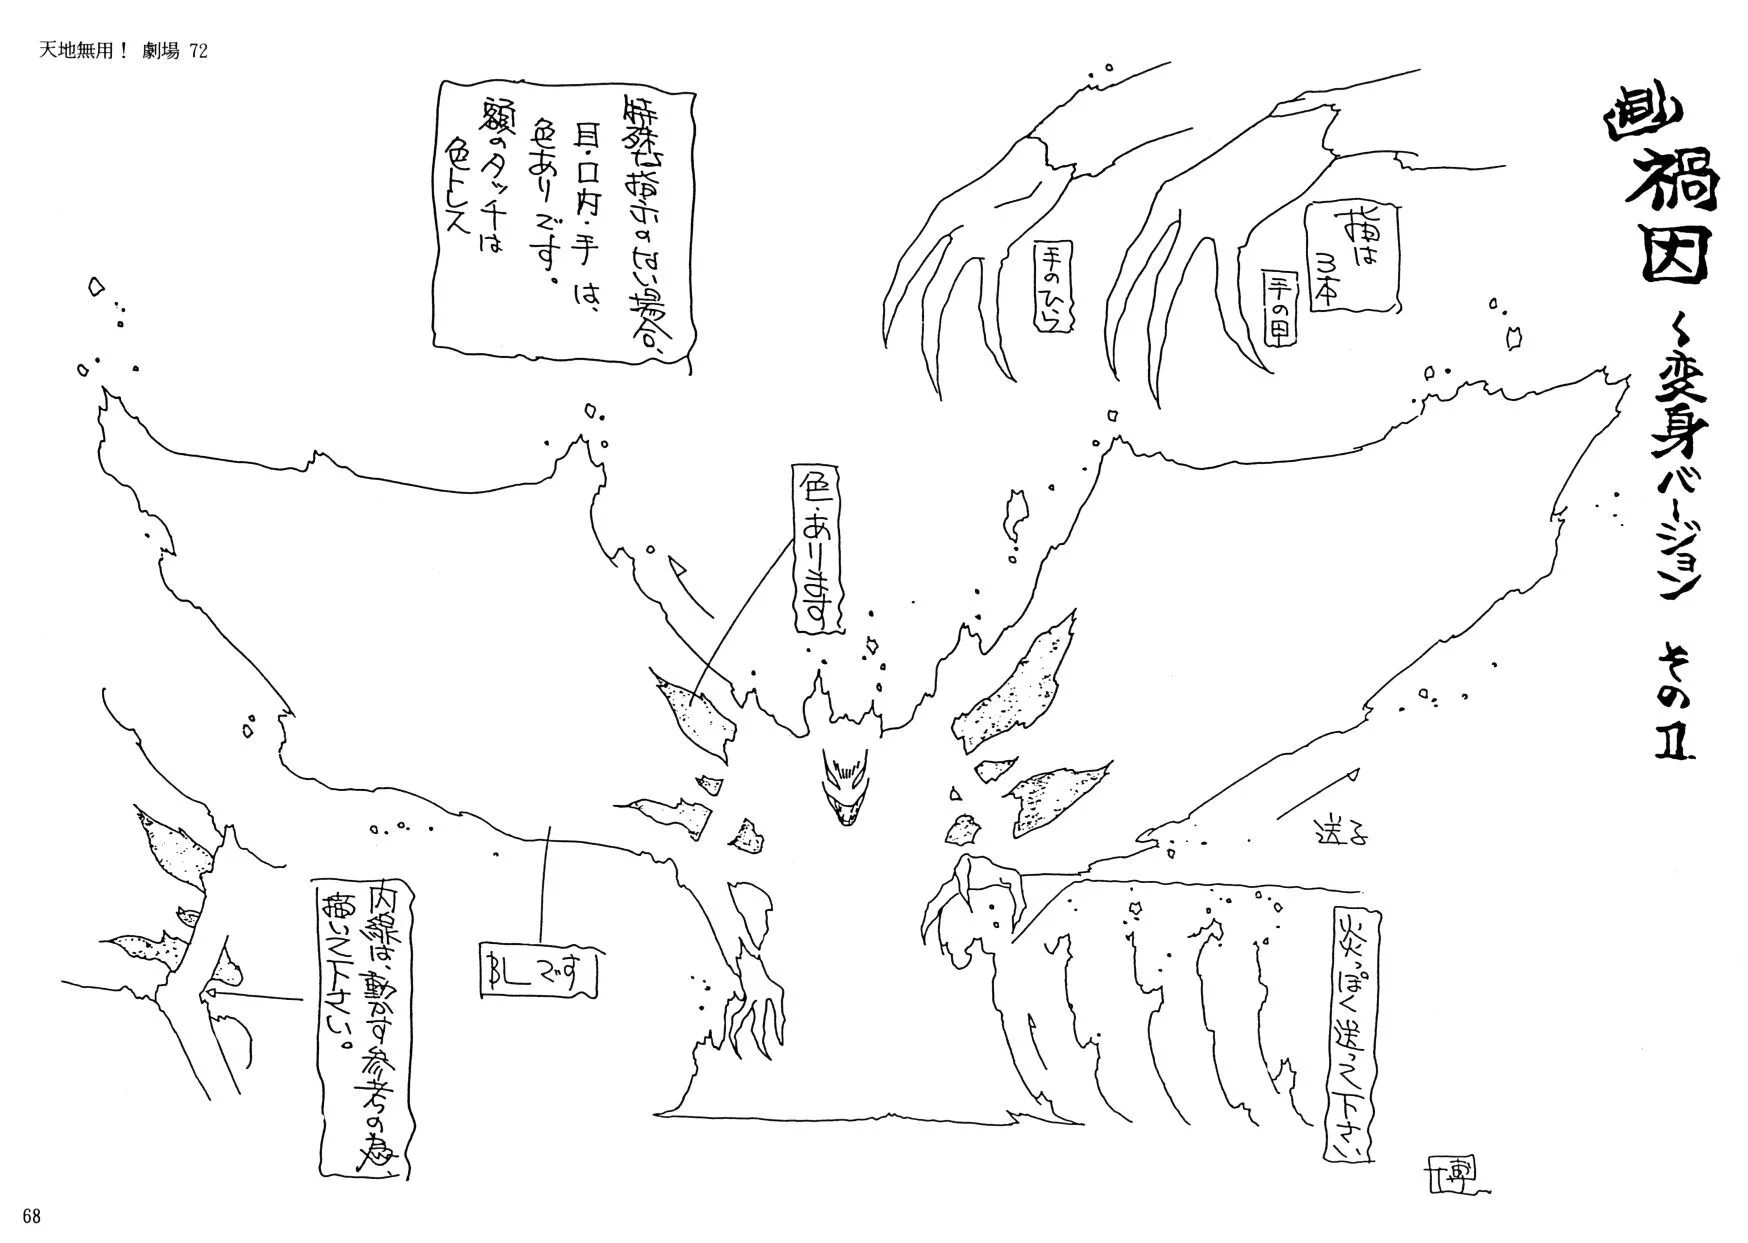 天地無用！ 劇場 72
禍因
～変身バージョン その2
指は
3本
手の甲
手のひら
特殊な指示のない場合、
目・口内・手は、
色ありです。
額のタッチは
色トレス
色・あります
送る
炎っぽく送って下さい
BLです
内線は、動かす参考の為、
描いて下さい。
68